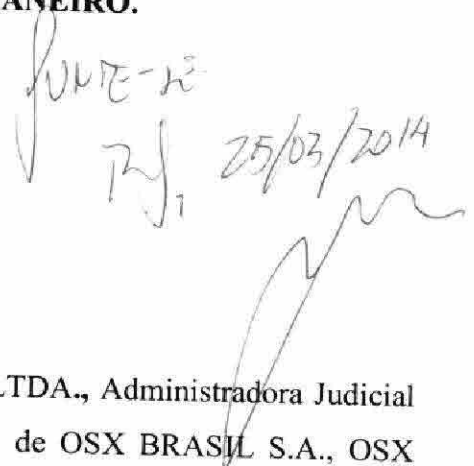 ANEIRO.
JUNTE-SE
RJ, 25/03/2014
LTDA., Administradora Judicial
de OSX BRASIL S.A., OSX